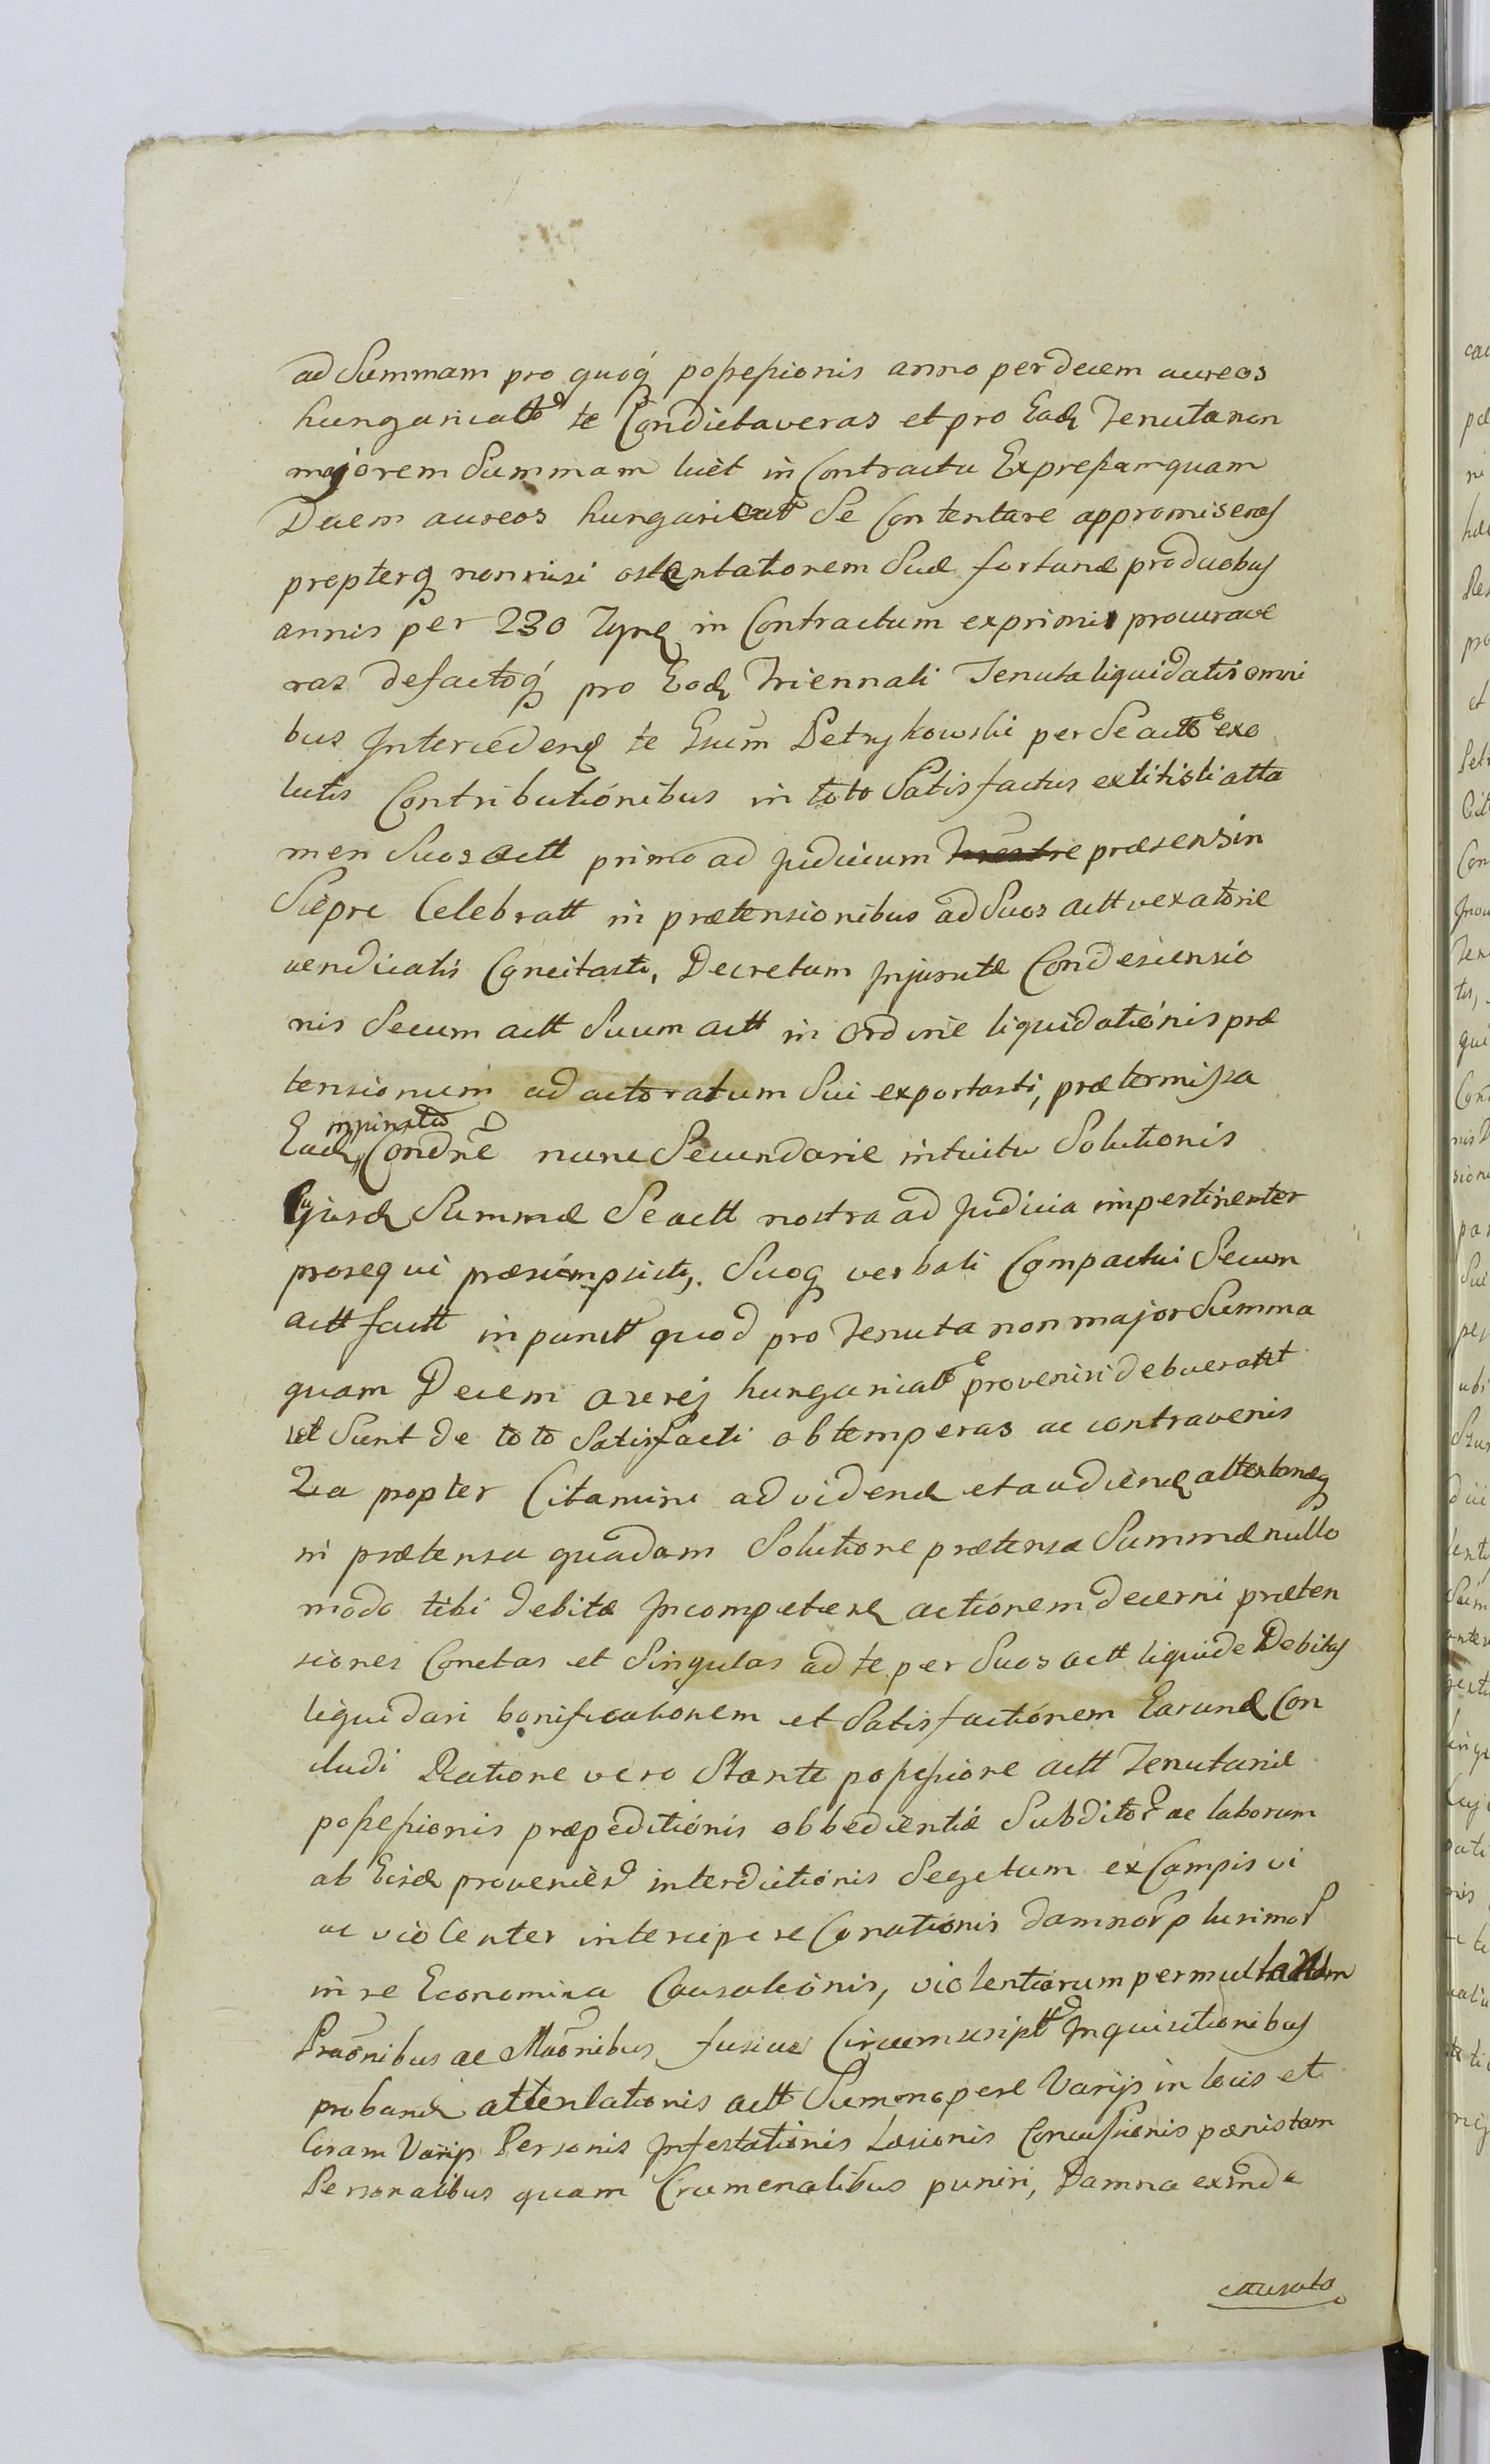 ad Summam pro quoq possessionis anno per decem aureos
hungaricatt te Condictaveras et pro Ead Tenuta non
majorem Summam licèt in Contractu Expressam quam
Decem aureos hungaricatt Se Contentare appromiseras
propterq nonnisi ostentationem Suæ fortunæ pro duobus
annis per 230 Tyn in Contractum exprimi procurave
ras defactoq pro Ead Triennali Tenuta liquidatis omni
bus Intercedend te Gsum Petrykowski per Se actt exo
lutis Contributionibus in toto Satisfactus extitisti atta
men Suos actt primo ad Judicium præsens in
Siepre Celebratt in prætensionibus ad Suos actt vexatorie
vendicatis Concitasti, Decretum Injunctæ Condescensio
nis Secum actt Suum actt in ordine liquidationis præ
tensionum ad actoratum Sui exportasti, prætermissa
Ead Condnē nunc Secundarie intuitu Solutionis
Ejusd Summæ Se actt nostra ad Judicia impertinenter
prosequi præsumpsisti, Suoq verbali Compactui Secum
actt factt in punctt quod pro Tenuta non major Summa
quam Decem aurej hungaricatt provenisi debuerant
et Sunt de toto Satisfacti obtemperas ac contravenis
Qua propter Citamini ad vidend et audiend attentoneq
in prætensa quadam Solutione prætensæ Summæ nullo
modo tibi debitæ Incompeten actionem decerni præten
siones Cunctas et Singulas ad te per Suos actt liquide Debitas
liquidari bonificationem et Satisfactionem Earund Con
cludi Ratione vero Stante possessione actt Tenutariæ
possessionis præpeditionis obbedientiæ Subditor ac laborum
ab Eisd provenien interdictionis Segetum ex Campis vi
ac violenter intercipere Conationis damnor plurimor
in re Economica Causationis, violentiarum per
Præōnibus ac Māōnibus fusius Circumscriptt Inquisitionibus
proband attentationis actt Summopere Varijs in locis et
Coram Varijs Personis Infestationis Læsionis Concussionis pænis tam
Personalibus quam Crumenalibus puniri, Damna exinde
causata